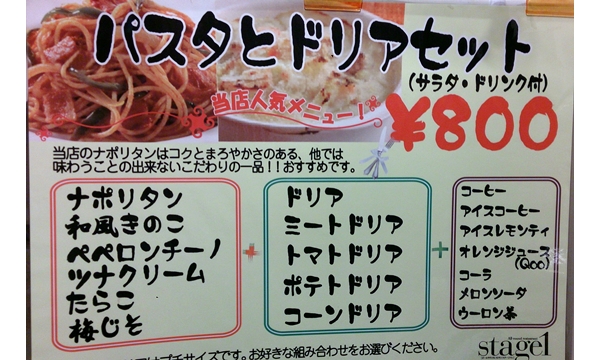 パスタとドリアセット
(サラダ・ドリンク付)
当店人気メニュー！
¥800
当店のナポリタンはコクとまろやかさのある、他では
味わうことの出来ないこだわりの一品！！おすすめです。
ナポリタン
和風きのこ
ペペロンチーノ
ツナクリーム
たらこ
梅じそ
+
ドリア
ミートドリア
トマトドリア
ポテトドリア
コーンドリア
+
コーヒー
アイスコーヒー
アイスレモンティ
オレンジジュース
(Qoo)
コーラ
メロンソーダ
ウーロン茶
プチサイズです。お好きな組み合わせをお選びください。
stage1